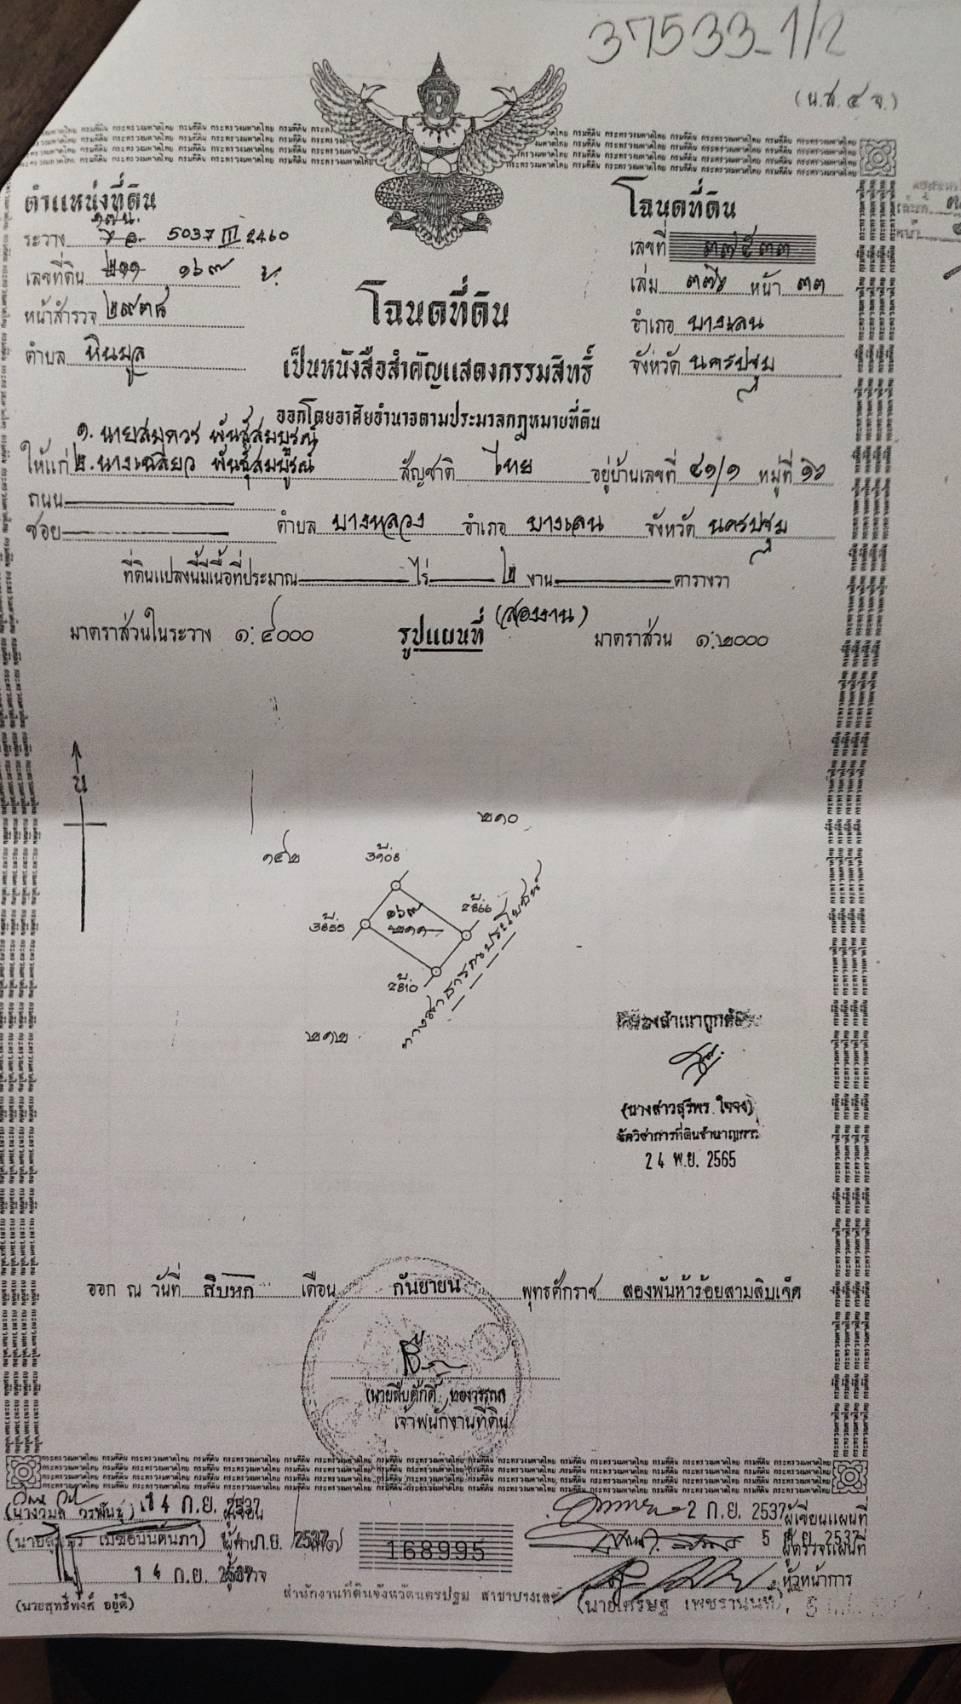 37533-1/2
(น.ส. ๔ จ.)
ตำแหน่งที่ดิน
ระวาง 5037 III 2460
เลขที่ดิน ๑๖๙
หน้าสำรวจ ๒๙๓๘
ตำบล หินมูล
โฉนดที่ดิน
เลขที่ ๓๗๕๓๓
เล่ม ๓๗๖ หน้า ๓๓
อำเภอ บางเลน
จังหวัด นครปฐม
โฉนดที่ดิน
เป็นหนังสือสำคัญแสดงกรรมสิทธิ์
ออกโดยอาศัยอำนาจตามประมวลกฎหมายที่ดิน
๑. นายสมควร พันธุ์สมบูรณ์
ให้แก่ ๒. นางเฉลียว พันธุ์สมบูรณ์ สัญชาติ ไทย อยู่บ้านเลขที่ ๔๑/๑ หมู่ที่ ๑๖
ถนน
ซอย ตำบล บางหลวง อำเภอ บางเลน จังหวัด นครปฐม
ที่ดินแปลงนี้มีเนื้อที่ประมาณ ไร่ ๒ งาน ตารางวา
(สองงาน)
มาตราส่วนในระวาง ๑:๔๐๐๐ รูปแผนที่ มาตราส่วน ๑:๒๐๐๐
น
๒๑๐
๑๔๒
๑๖๙
๒๑๑
๒๑๒
ทางสาธารณะประโยชน์
รับรองสำเนาถูกต้อง
(นางสาวสุรีพร ใจจง)
นักวิชาการที่ดินชำนาญการ
24 พ.ย. 2565
ออก ณ วันที่ สิบหก เดือน กันยายน พุทธศักราช สองพันห้าร้อยสามสิบเจ็ด
เจ้าพนักงานที่ดิน
14 ก.ย. 2537 ผู้เขียน
2 ก.ย. 2537 ผู้เขียนแผนที่
5 ก.ย. 2537 ผู้ตรวจแผนที่
168995
14 ก.ย. 2537 ผู้ตรวจ
หัวหน้าการ
สำนักงานที่ดินจังหวัดนครปฐม สาขาบางเลน
(นายสุทธิพงศ์ อยู่ดี)
(นายเศรษฐ เพชรานนท์)